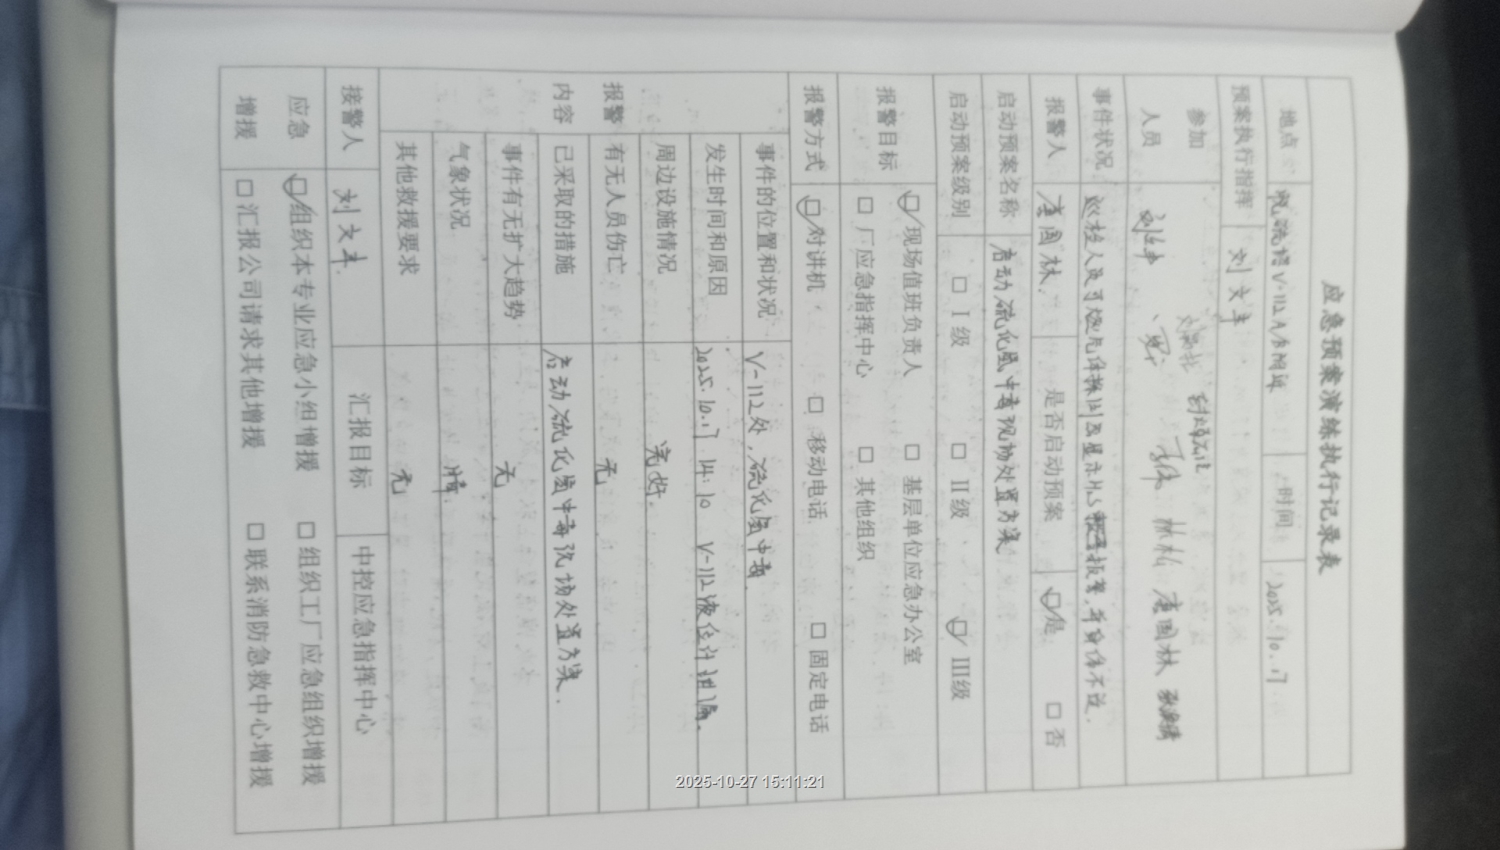 应急预案演练执行记录表
地点 脱硫塔V-112A/B附近 时间 2025.10.17
预案执行指挥 刘文丰
参加
人员 唐国林
事件状况 巡检人员可燃气体探测仪显示H₂S报警,并身体不适.
报警人 唐国林 是否启动预案 ☑是 □否
启动预案名称 启动硫化氢中毒现场处置方案
启动预案级别 □ I 级 □ II 级 ☑ III级
报警目标 ☑现场值班负责人 □ 基层单位应急办公室
□ 厂应急指挥中心 □ 其他组织
报警方式 ☑对讲机 □ 移动电话 □ 固定电话
报警
内容
事件的位置和状况 V-112处,硫化氢中毒.
发生时间和原因 2025.10.17 14:10 V-112液位计泄漏.
周边设施情况 完好.
有无人员伤亡 无
已采取的措施 启动硫化氢中毒现场处置方案.
事件有无扩大趋势 无
气象状况 晴
其他救援要求 无
接警人 刘文丰 汇报目标 中控应急指挥中心
应急
增援
☑组织本专业应急小组增援 □ 组织工厂应急组织增援
□ 汇报公司请求其他增援 □ 联系消防急救中心增援
2025-10-27 15:11:21